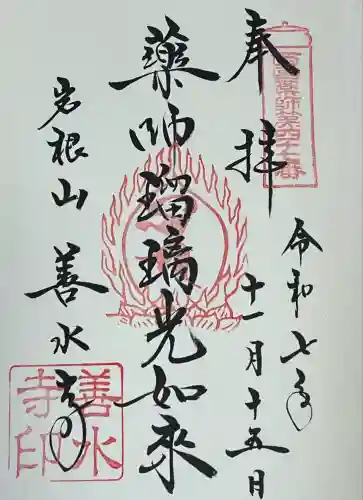 奉拝
西国薬師第四十七番
令和七年
十一月十五日
薬師瑠璃光如来
岩根山
善水寺
善水寺印